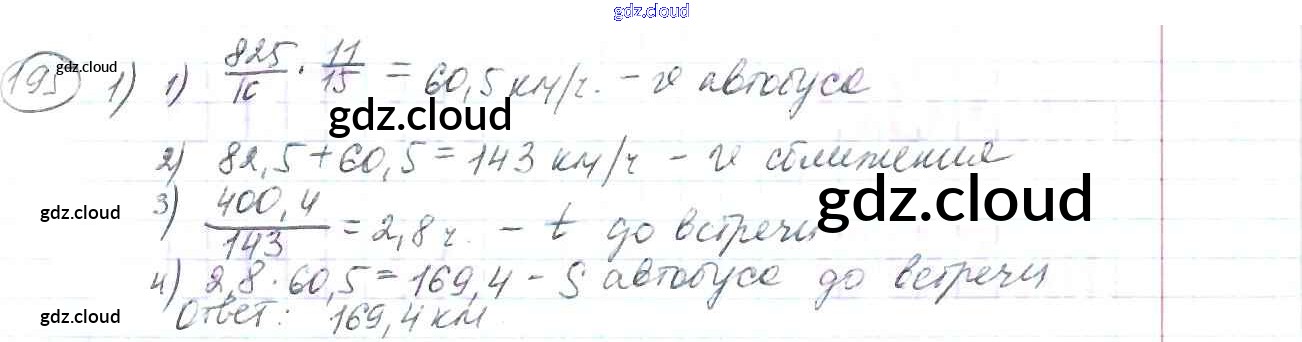 gdz.cloud
195 gdz.cloud 1) 1) 825/10 · 11/15 = 60,5 км/ч. – v автобуса
gdz.cloud
2) 82,5 + 60,5 = 143 км/ч – v сближения
gdz.cloud
gdz.cloud 3) 400,4/143 = 2,8 ч. – t до встречи
4) 2,8 · 60,5 = 169,4 – S автобуса до встречи
gdz.cloud Ответ: 169,4 км